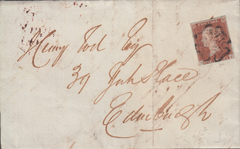 Henry Tod Esq
39 York Place
Edinburgh